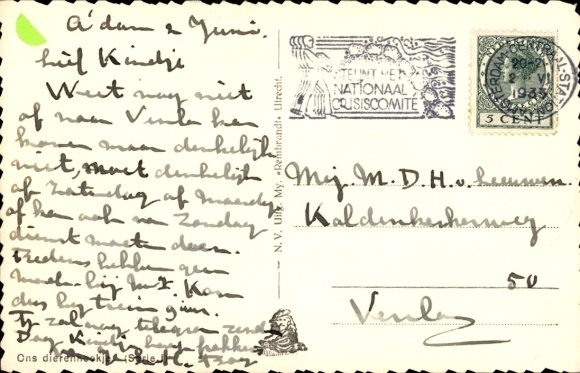 A'dam 2 Juni.
lief Kindje
Weet nog niet
of naar Venlo kan
komen maar denkelijk
niet, moet denkelijk
of Zaterdag of Maandag
of kan ook van Zondag
dienst moet doen.
hebben geen
Kom
dus bij
Ik zal nog telegram zenden
Dag Kindje
Ons dierenhoekje (Serie
N. V. Uitg. My. „Rembrandt" Utrecht.
STEUNT HET
NATIONAAL
CRISISCOMITÉ
AMSTERDAM-CENTRAAL-STATION
20-
2 VI
1933
5 CENT
Mej. M. D. H. v. Leeuwen.
Kaldenkerkerweg
50
Venlo